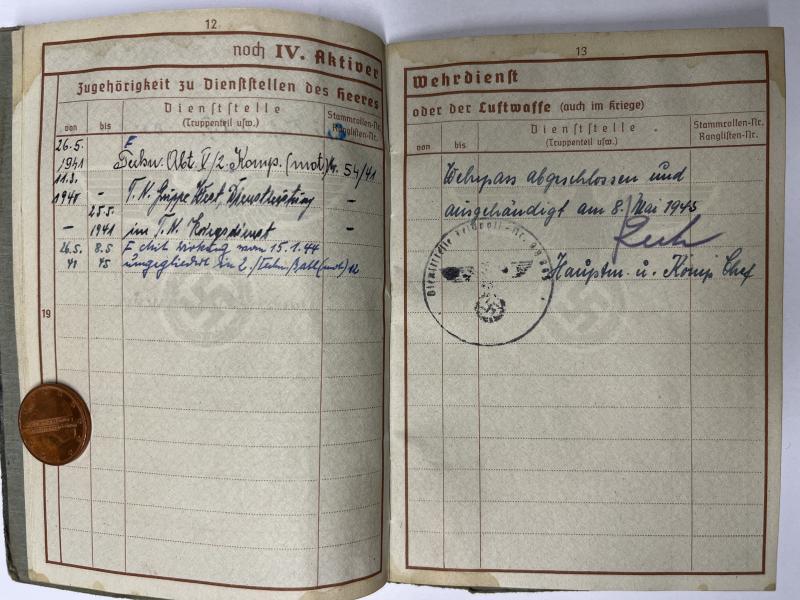 12
noch IV. Aktiver
Zugehörigkeit zu Dienststellen des Heeres
von
bis
Dienststelle
(Truppenteil usw.)
Stammrollen-Nr.
Ranglisten-Nr.
26.5.
1941
E
Techn. Abt. V/2. Komp. (mot)
54/41
11.3.
1940
-
T.N. Gruppe West, Dienstleistung
-
-
25.5.
1941
im T.N. Kriegsdienst
-
26.5.
41
8.5
45
E mit Wirkung vom 15.1.44
umgegliedert in 2./Techn. Batl (mot)
19
13
Wehrdienst
oder der Luftwaffe (auch im Kriege)
von
bis
Dienststelle
(Truppenteil usw.)
Stammrollen-Nr.
Ranglisten-Nr.
Wehrpass abgeschlossen und
ausgehändigt am 8. Mai 1945
Hauptm. u. Komp. Chef
Dienststelle Feldpost-Nr.